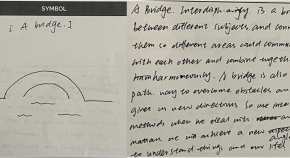 SYMBOL
[ A bridge. ]
A Bridge. Interdisciplinarity is a br
between different subjects, and conn
them so different areas could commun
with each other and combine together
harmoniously. A bridge is also
path way to overcome obstacles an
gives us new directions. So use inter
methods when we dealed with
matian we will achieve a new aspect
to understand things and our life!